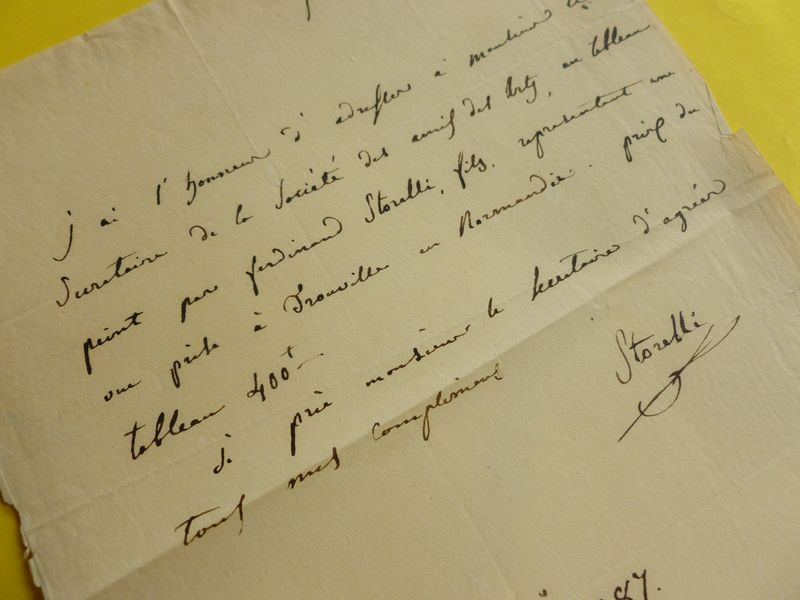 j'ai l'honneur d'adresser à monsieur le
Secretaire de la Société des amis des Arts, un tableau
peint par ferdinand Storelli, fils, representant une
vue prise à Trouville en Normandie. prix du
tableau 400 f
je prie monsieur le secretaire d'agréer
tous mes complimens
Storelli
87.